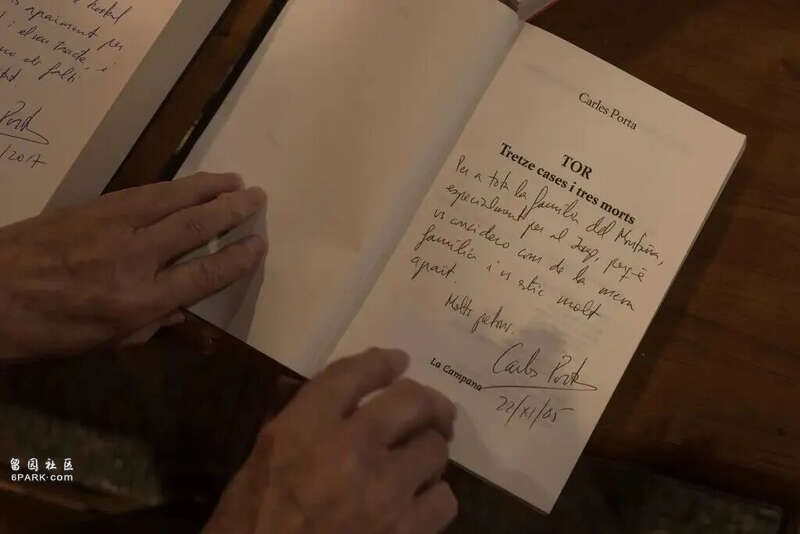 hostal
i el seu tracte, i
Porta
/2017
Carles Porta
TOR
Tretze cases i tres morts
Per a tota la família del Montaña,
especialment per el Josep, perquè
us considero com de la meva
família i us estic molt
agraït.
Molts petons.
Carles Porta
22/XI/05
La Campana
留园社区
6PARK.com